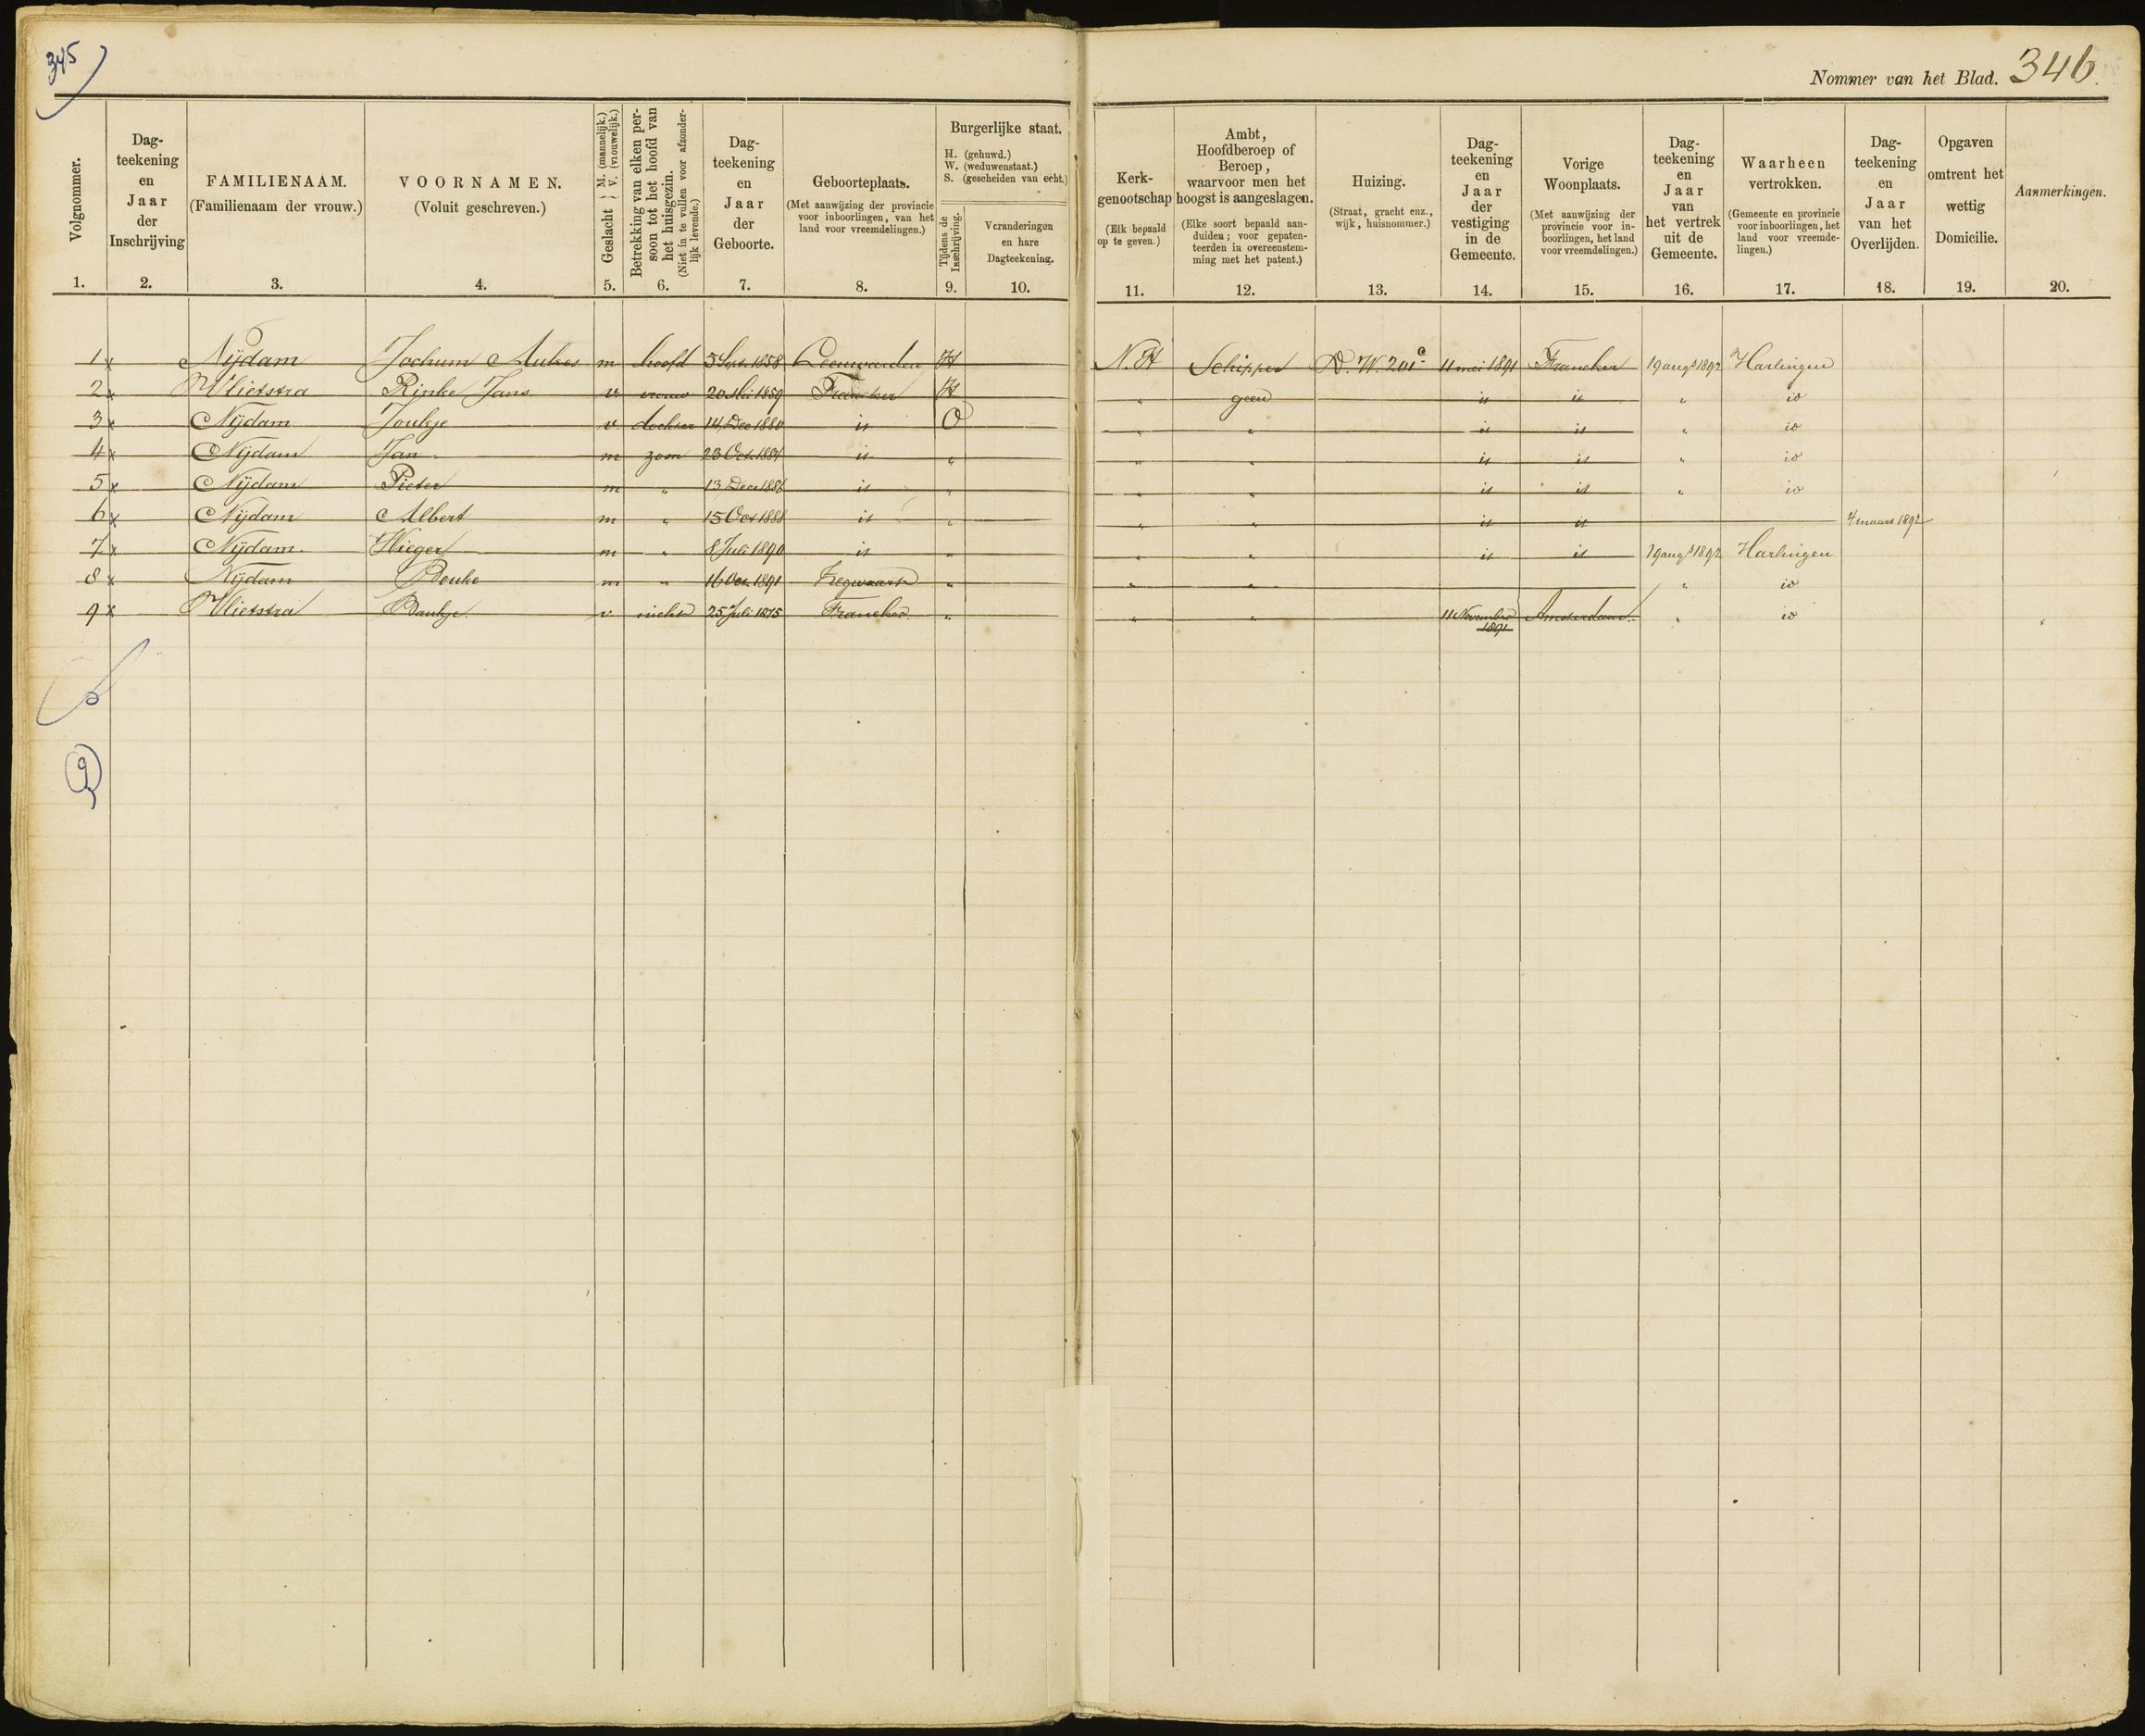 345
Nommer van het Blad. 346.
Volgnommer. 1.
Dag-
teekening
en
Jaar
der
Inschrijving
2.
FAMILIENAAM.
(Familienaam der vrouw.)
3.
VOORNAMEN.
(Voluit geschreven.)
4.
Geslacht { M. (mannelijk.) V. (vrouwelijk.)
5.
Betrekking van elken per-
soon tot het hoofd van
het huisgezin.
(Niet in te vullen voor afzonder-
lijk levende.)
6.
Dag-
teekening
en
Jaar
der
Geboorte.
7.
Geboorteplaats.
(Met aanwijzing der provincie
voor inboorlingen, van het
land voor vreemdelingen.)
8.
Burgerlijke staat.
H. (gehuwd.)
W. (weduwenstaat.)
S. (gescheiden van echt.)
Tijdens de
Inschrijving.
9.
Veranderingen
en hare
Dagteekening.
10.
Kerk-
genootschap
(Elk bepaald
op te geven.)
11.
Ambt,
Hoofdberoep of
Beroep,
waarvoor men het
hoogst is aangeslagen.
(Elke soort bepaald aan-
duiden; voor gepaten-
teerden in overeenstem-
ming met het patent.)
12.
Huizing.
(Straat, gracht enz.,
wijk, huisnommer.)
13.
Dag-
teekening
en
Jaar
der
vestiging
in de
Gemeente.
14.
Vorige
Woonplaats.
(Met aanwijzing der
provincie voor in-
boorlingen, het land
voor vreemdelingen.)
15.
Dag-
teekening
en
Jaar
van
het vertrek
uit de
Gemeente.
16.
Waarheen
vertrokken.
(Gemeente en provincie
voor inboorlingen, het
land voor vreemde-
lingen.)
17.
Dag-
teekening
en
Jaar
van het
Overlijden.
18.
Opgaven
omtrent het
wettig
Domicilie.
19.
Aanmerkingen.
20.
1 x Nijdam Jochum Aukes m hoofd 5 Sept. 1858 Leeuwarden H N.H Schipper D. W. 201 c 11 mei 1891 Franeker 19 augs 1892 Harlingen
2 x Vlietstra Rinke Jans v vrouw 20 1859 Franeker H " geen id id " id
3 x Nijdam Joukje v dochter 14 Dec 1880 id O " " id id " id
4 x Nijdam Jan m zoon 23 Oct. 1884 id " " " id id " id
5 x Nijdam Pieter m " 13 Dec 1886 id " " " id id " id
6 x Nijdam Albert m " 15 Oct 1888 id " " " id id 4 maart 1892
7 x Nijdam Wieger m " 8 Juli 1890 id " " " id id 19 augs 1892 Harlingen
8 x Nijdam Douke m " 16 Oct. 1891 Zegwaart " " " " id
9 x Vlietstra Baukje v nicht 25 Juli 1875 Franeker " " " 11 November 1891 Amsterdam " id
9